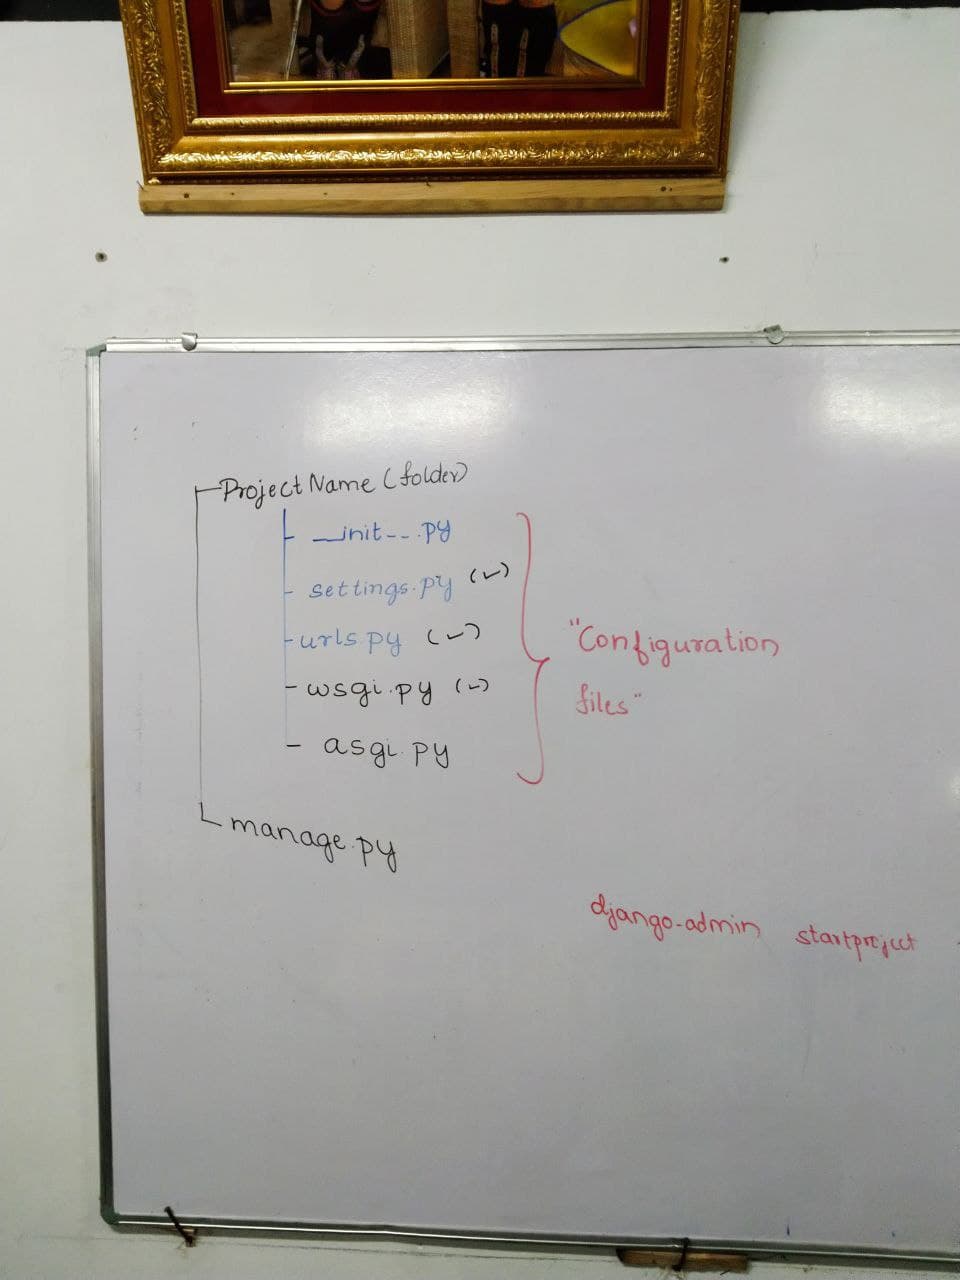 Project Name (folder)
__init--.py
settings.py (✓)
urls.py (✓)
wsgi.py (✓)
asgi.py
"Configuration
files"
manage.py
django-admin startproject